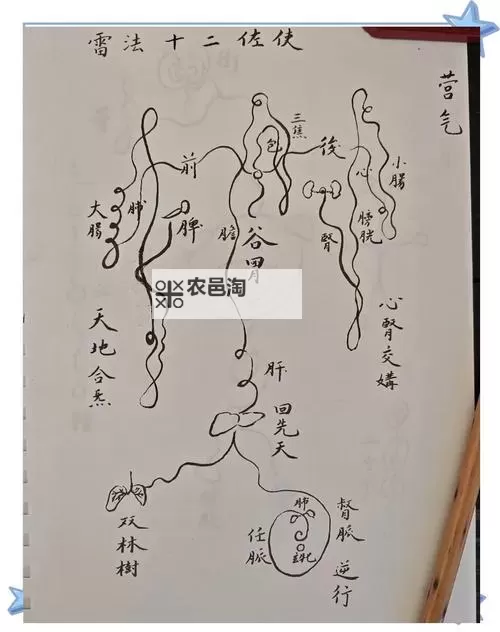 雷法十二佐使
营气
三焦
包
前
後
小腸
心
膀胱
大腸
肺
脾
膽
腎
谷胃
农邑淘
天地合炁
心腎交媾
肝
回先天
双林樹
肺
任脈
督脈逆行